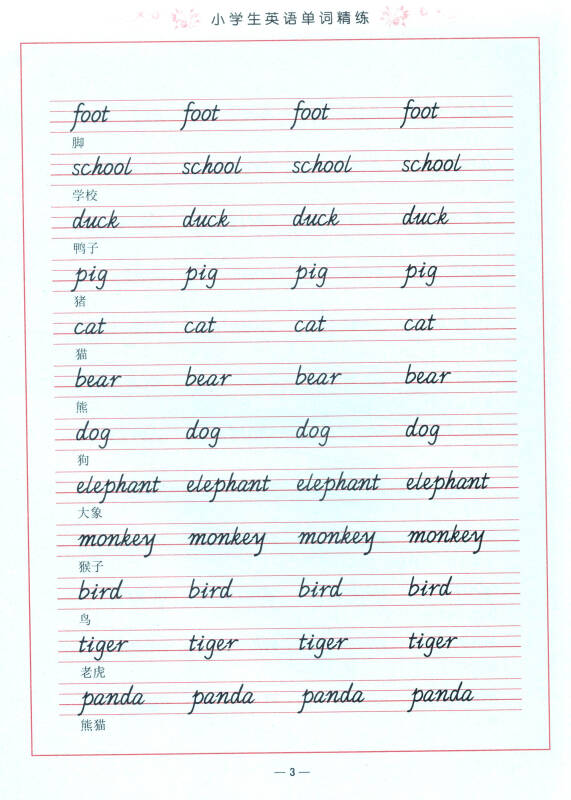 小学生英语单词精练
foot foot foot foot
脚
school school school school
学校
duck duck duck duck
鸭子
pig pig pig pig
猪
cat cat cat cat
猫
bear bear bear bear
熊
dog dog dog dog
狗
elephant elephant elephant elephant
大象
monkey monkey monkey monkey
猴子
bird bird bird bird
鸟
tiger tiger tiger tiger
老虎
panda panda panda panda
熊猫
— 3 —